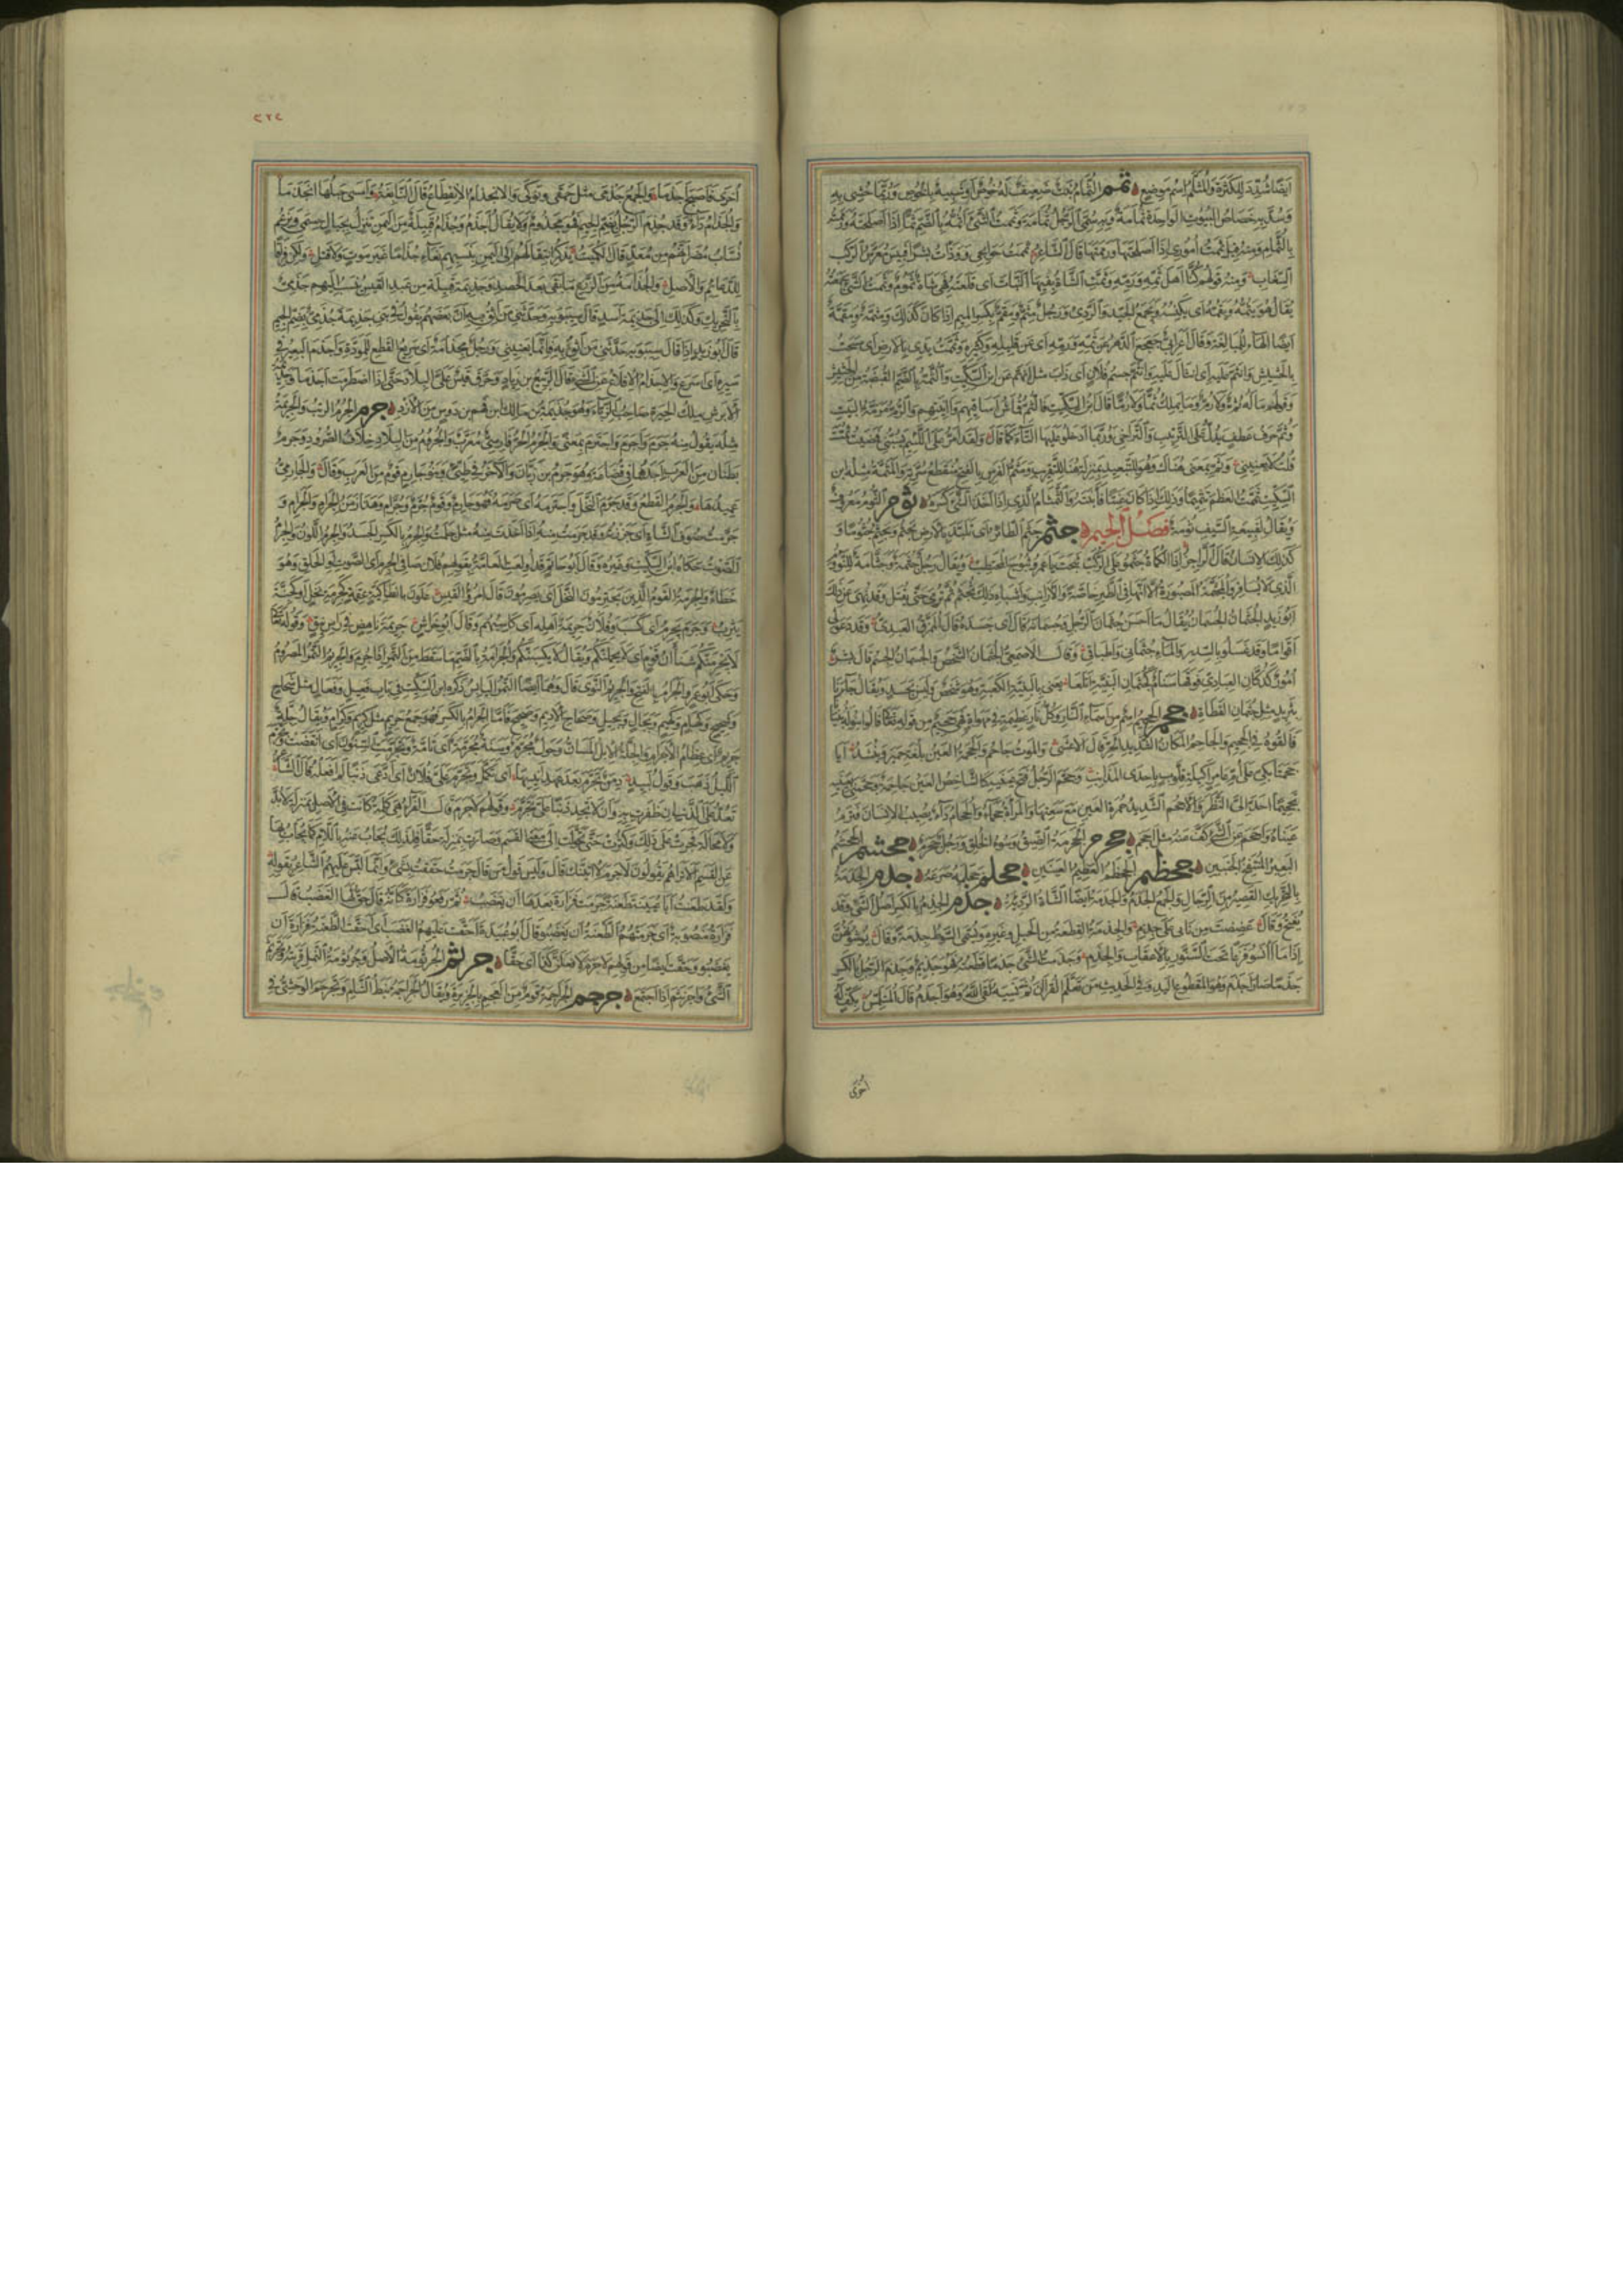 ايضا شدد للكثرة والمثلم اسم موضع ثمم الثمام نبت ضعيف له خوص او شبيه بالخوص وربما حشي به
وسد به خصاص البيوت الواحدة ثمامة وبه سمي الرجل ثمامة وثممت الشئ اثمه بالضم ثما اذا اصلحته ورممته
بالثمام ومنه قيل ثممت اموري اذا اصلحتها ورممتها قال الشاعر ثممت حوائجي ووذأت بشرا فبئس معرس الركب
السغاب ومنه قولهم كنا اهل ثمه ورمه وثمت الشاة بفيها النبات اي قلعته فهي شاة ثموم وثممت الشئ جمعته
يقال هو يثمه ويقمه اي يكنسه ويجمع الجيد والردئ ورجل مثم ومقم بكسر الميم اذا كان كذلك ومثمة ومقمة
ايضا الهاء للمبالغة وقال اعرابي جعجع الدهر عن ثمه ورمه اي عن قليله وكثيره وثممت يدي بالارض اي مسحت
بالحشيش وانثم عليه اي انثال عليه وانثم جسم فلان اي ذاب مثل انهم عن ابن السكيت والثمة بالضم القبضة من الحشيش
وقولهم ما له ثم ولا رم وما يملك ثما ولا رما قال ابن السكيت فالثم قماش اساقيهم وآنيتهم والرم مرمة البيت
وثم حرف عطف يدل على الترتيب والتراخي وربما ادخلوا عليها التاء كما قال ولقد امر على اللئيم يسبني فمضيت ثمت
قلت لا يعنيني وثم بمعنى هناك وهو للتبعيد بمنزلة هنا للتقريب ومثم الفرس بالفتح منقطع سرته والمثمة مثله ابن
السكيت ثممت العظم تثميما وذلك اذا كان عنتا فابنته والثمثام الذي اذا اخذ الشئ كسره ثوم الثوم معروف
ويقال لقبيعة السيف ثومة فصل الجيم جثم جثم الطائر اي تلبد بالارض يجثم ويجثم جثوما و
كذلك الانسان قال الراجز اذا الكماة جثموا على الركب ثبجت يا عمرو ثبوج المحتطب ويقال رجل جثمة وجثامة للنؤوم
الذي لا يسافر والمجثمة المصبورة الا انها في الطير خاصة والارانب واشباه ذلك تجثم ثم ترمى حتى تقتل وقد نهي عن ذلك
ابو زيد الجثمان الجسمان يقال ما احسن جثمان الرجل وجسمانه قال اي جسده قال الممزق العبدي وقد دعوا لي
اقواما وقد غسلوا بالسدر والماء جثماني واطباقي وقال الاصمعي الجثمان الشخص والجسمان الجسم قال بشر
امون كدكان العبادي فوقها سنام كجثمان البنية اتلعا يعني بالبنية الكعبة وهو شخص وليس بجسد ويقال جاءنا
بثريد مثل جثمان القطاة جحم الجحيم اسم من اسماء النار وكل نار عظيمة في مهواة فهي جحيم من قوله تعالى قالوا ابنوا له بنيانا
فالقوه في الجحيم والجاحم المكان الشديد الحر قال الاعشى والموت جاحم والجحمة العين بلغة حمير وينشد ايا
جحمتا بكي على ام عامر اكيلة قلوب باحدى المذانب وجحم الرجل فتح عينيه كالشاخص العين جاحمة وجحمني بعينيه
تجحيما احد الي النظر والاجحم الشديد حمرة العين مع سعتها والمرأة جحماء والجحام داء يصيب الانسان فترم
عيناه واجحم عن الشئ كف عنه مثل احجم جحرم الجحرمة الضيق وسوء الخلق ورجل جحرم جحشم الجحشم
البعير المنتفخ الجنبين جحظم الجحظم العظيم العينين جحلم جحلمه صرعه جدم الجدمة
بالتحريك القصير من الرجال والجمع الجدم والجدمة ايضا الشاة الرديئة جذم الجذم بالكسر اصل الشئ وقد
يفتح وقال عضضت من نابي على جذم والجذمة القطعة من الحبل وغيره وتسمى السوط جذمة وقال يوشونهن
اذا ما آنسوا فزعا تحت السنور بالاعقاب والجذم وجذمت الشئ جذما قطعته فهو جذيم وجذم الرجل بالكسر
جذما صار اجذم وهو المقطوع اليد وفي الحديث من تعلم القرآن ثم نسيه لقي الله وهو اجذم قال المتلمس
اخرى
٢٢٢
اخرى فاصبح اجذما والجمع جذمى مثل حمقى ونوكى والانجذام الانقطاع قال النابغة وامسى حبلها انجذما
والجذام داء وقد جذم الرجل بضم الجيم فهو مجذوم ولا يقال اجذم وجذام قبيلة من اليمن تنزل بجبال حسمى وتزعم
نساب مضر انهم من معد قال الكميت يذكر انتقالهم الى اليمن بنسبهم نعاء جذاما غير موت ولا قتل ولكن فراقا
للدعائم والاصل والجذامة من الزرع ما بقي بعد الحصد وجذيمة قبيلة من عبد القيس ينسب اليهم جذمي
بالتحريك وكذلك الى جذيمة اسد قال سيبويه وحدثني من اثق به ان بعضهم يقول في بني جذيمة جذمي بضم الجيم
قال ابو زيد اذا قال سيبويه حدثني من اثق به فانما يعنيني ورجل مجذامة اي سريع القطع للمودة واجذم البعير في
سيره اي اسرع والاجذام الاقلاع عن الشئ قال الربيع بن زياد وحرق قيس علي البلاد حتى اذا اضطرمت اجذما وجذيمة
الابرش ملك الحيرة صاحب الزباء وهو جذيمة بن مالك بن فهم بن دوس من الازد جرم الجرم الذنب والجريمة
مثله يقول منه جرم واجرم واجترم بمعنى والجرم الحر فارسي معرب والجروم من البلاد خلاف الصرود وجرم
بطنان من العرب احدهما في قضاعة وهو جرم بن زبان والآخر في طيئ وبنو جارم قوم من العرب وقال والجارمي
عميدها والجرم القطع وقد جرم النخل واجترمه اي صرمه فهو جارم وقوم جرم وجرام وهذا زمن الجرام والجرام و
جرمت صوف الشاة اي جززته وقد جرمت منه اذا اخذت منه مثل جلمت والجرم بالكسر الجسد والجرم اللون والجرم
الصوت حكاه ابن السكيت وغيره وقال ابو حاتم قد اولعت العامة بقولهم فلان صافي الجرم اي الصوت او الحلق وهو
خطاء والجرمة القوم الذين يجترمون النخل اي يصرمون قال امرؤ القيس علون بانطاكية فوق عقمة كجرمة نخل او كجنة
يثرب وجرم يجرم اي كسب وفلان جريمة اهله اي كاسبهم وقال ابو خراش جريمة ناهض في راس نيق وقوله تعالى
لا يجرمنكم شنآن قوم اي لا يحملنكم ويقال لا يكسبنكم والجرامة بالضم ما سقط من التمر اذا جرم والجريم التمر المصروم
وحكى ابو عمرو الجرام بالفتح والجريم النوى قال وهما ايضا التمر اليابس ذكره ابن السكيت في باب فعيل وفعال مثل شحاج
وشحيج وكهام وكهيم وبجال وبجيل وصحاح الاديم وصحيح فاما الجرام بالكسر فهو جمع جريم مثل كريم وكرام ويقال جلة
جريم اي عظام الاجرام والجلة الابل المسان وحول مجرم وسنة مجرمة اي تامة وتجرمت السنون اي انقضت وتجرم
الليل ذهب وقول لبيد دمن تجرم بعد عهد انيسها اي تكمل وتجرم علي فلان اي ادعى ذنبا لم افعله قال الشاعر
تعد علي الذنب ان ظفرت به وان لا تجد ذنبا علي تجرم وقولهم لا جرم قال الفراء هي كلمة كانت في الاصل بمنزلة لا بد
ولا محالة فجرت على ذلك وكثرت حتى تحولت الى معنى القسم وصارت بمنزلة حقا فلذلك يجاب عنه باللام كما يجاب بها
عن القسم الا تراهم يقولون لا جرم لآتينك قال وليس قول من قال جرمت حققت بشئ وانما لبس عليهم الشاعر بقوله
ولقد طعنت ابا عيينة طعنة جرمت فزارة بعدها ان يغضبوا فرفعوا فزارة كانه قال حق لها الغضب قال
فزارة منصوبة اي جرمتهم الطعنة ان يغضبوا وقال ابو عبيدة احقت عليهم الغضب اي احقت الطعنة فزارة ان
يغضبوا وحقت ايضا من قولهم لا جرم لافعلن كذا اي حقا جرثم الجرثومة الاصل وجرثومة النمل قريته وتجرثم
الشئ واجرنثم اذا اجتمع جرجم الجراجمة قوم من العجم بالجزيرة ويقال الجراجمة نبط الشام وتجرجم الوحشي في